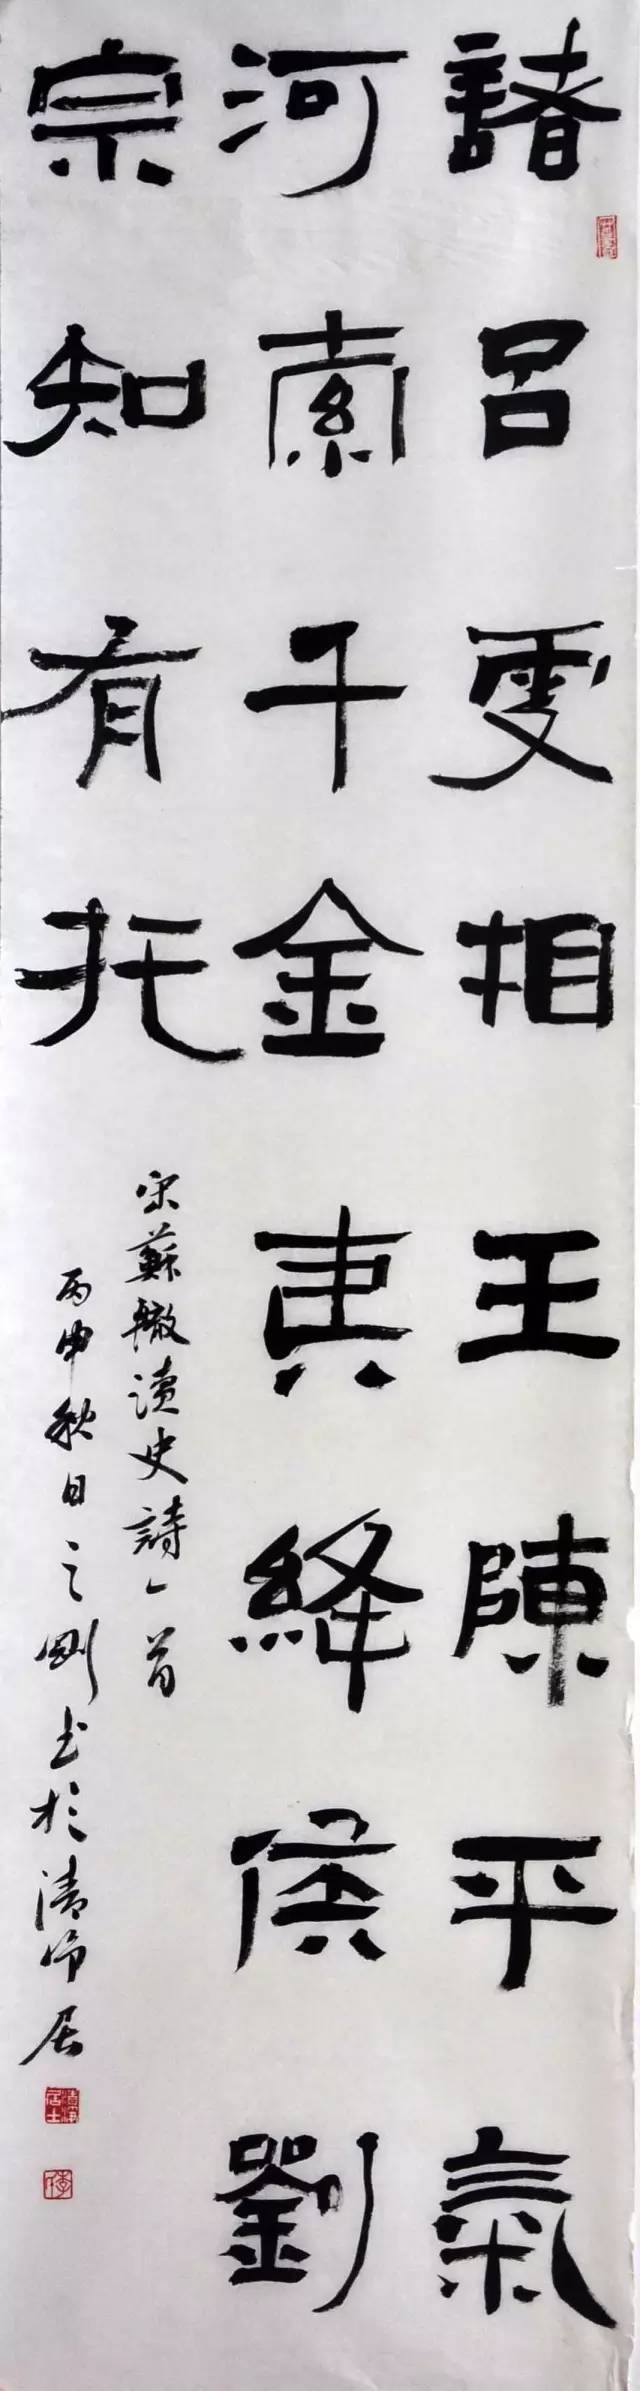 諸呂更相王陳平氣
河索千金壽絳侯劉
宗知有托
宋蘇轍讀史詩一首
丙申秋日之剛书於清净居